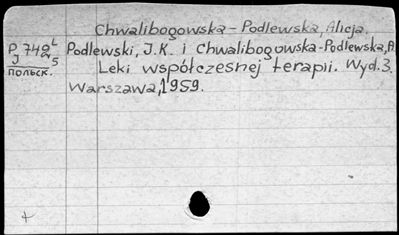 Chwalibogowska-Podlewska, Alicja.
P 742 L
J 5
польск.
Podlewski, J.K. i Chwalibogowska-Podlewska, A.
Leki współczesnej terapii. Wyd. 3.
Warszawa, 1959.
+